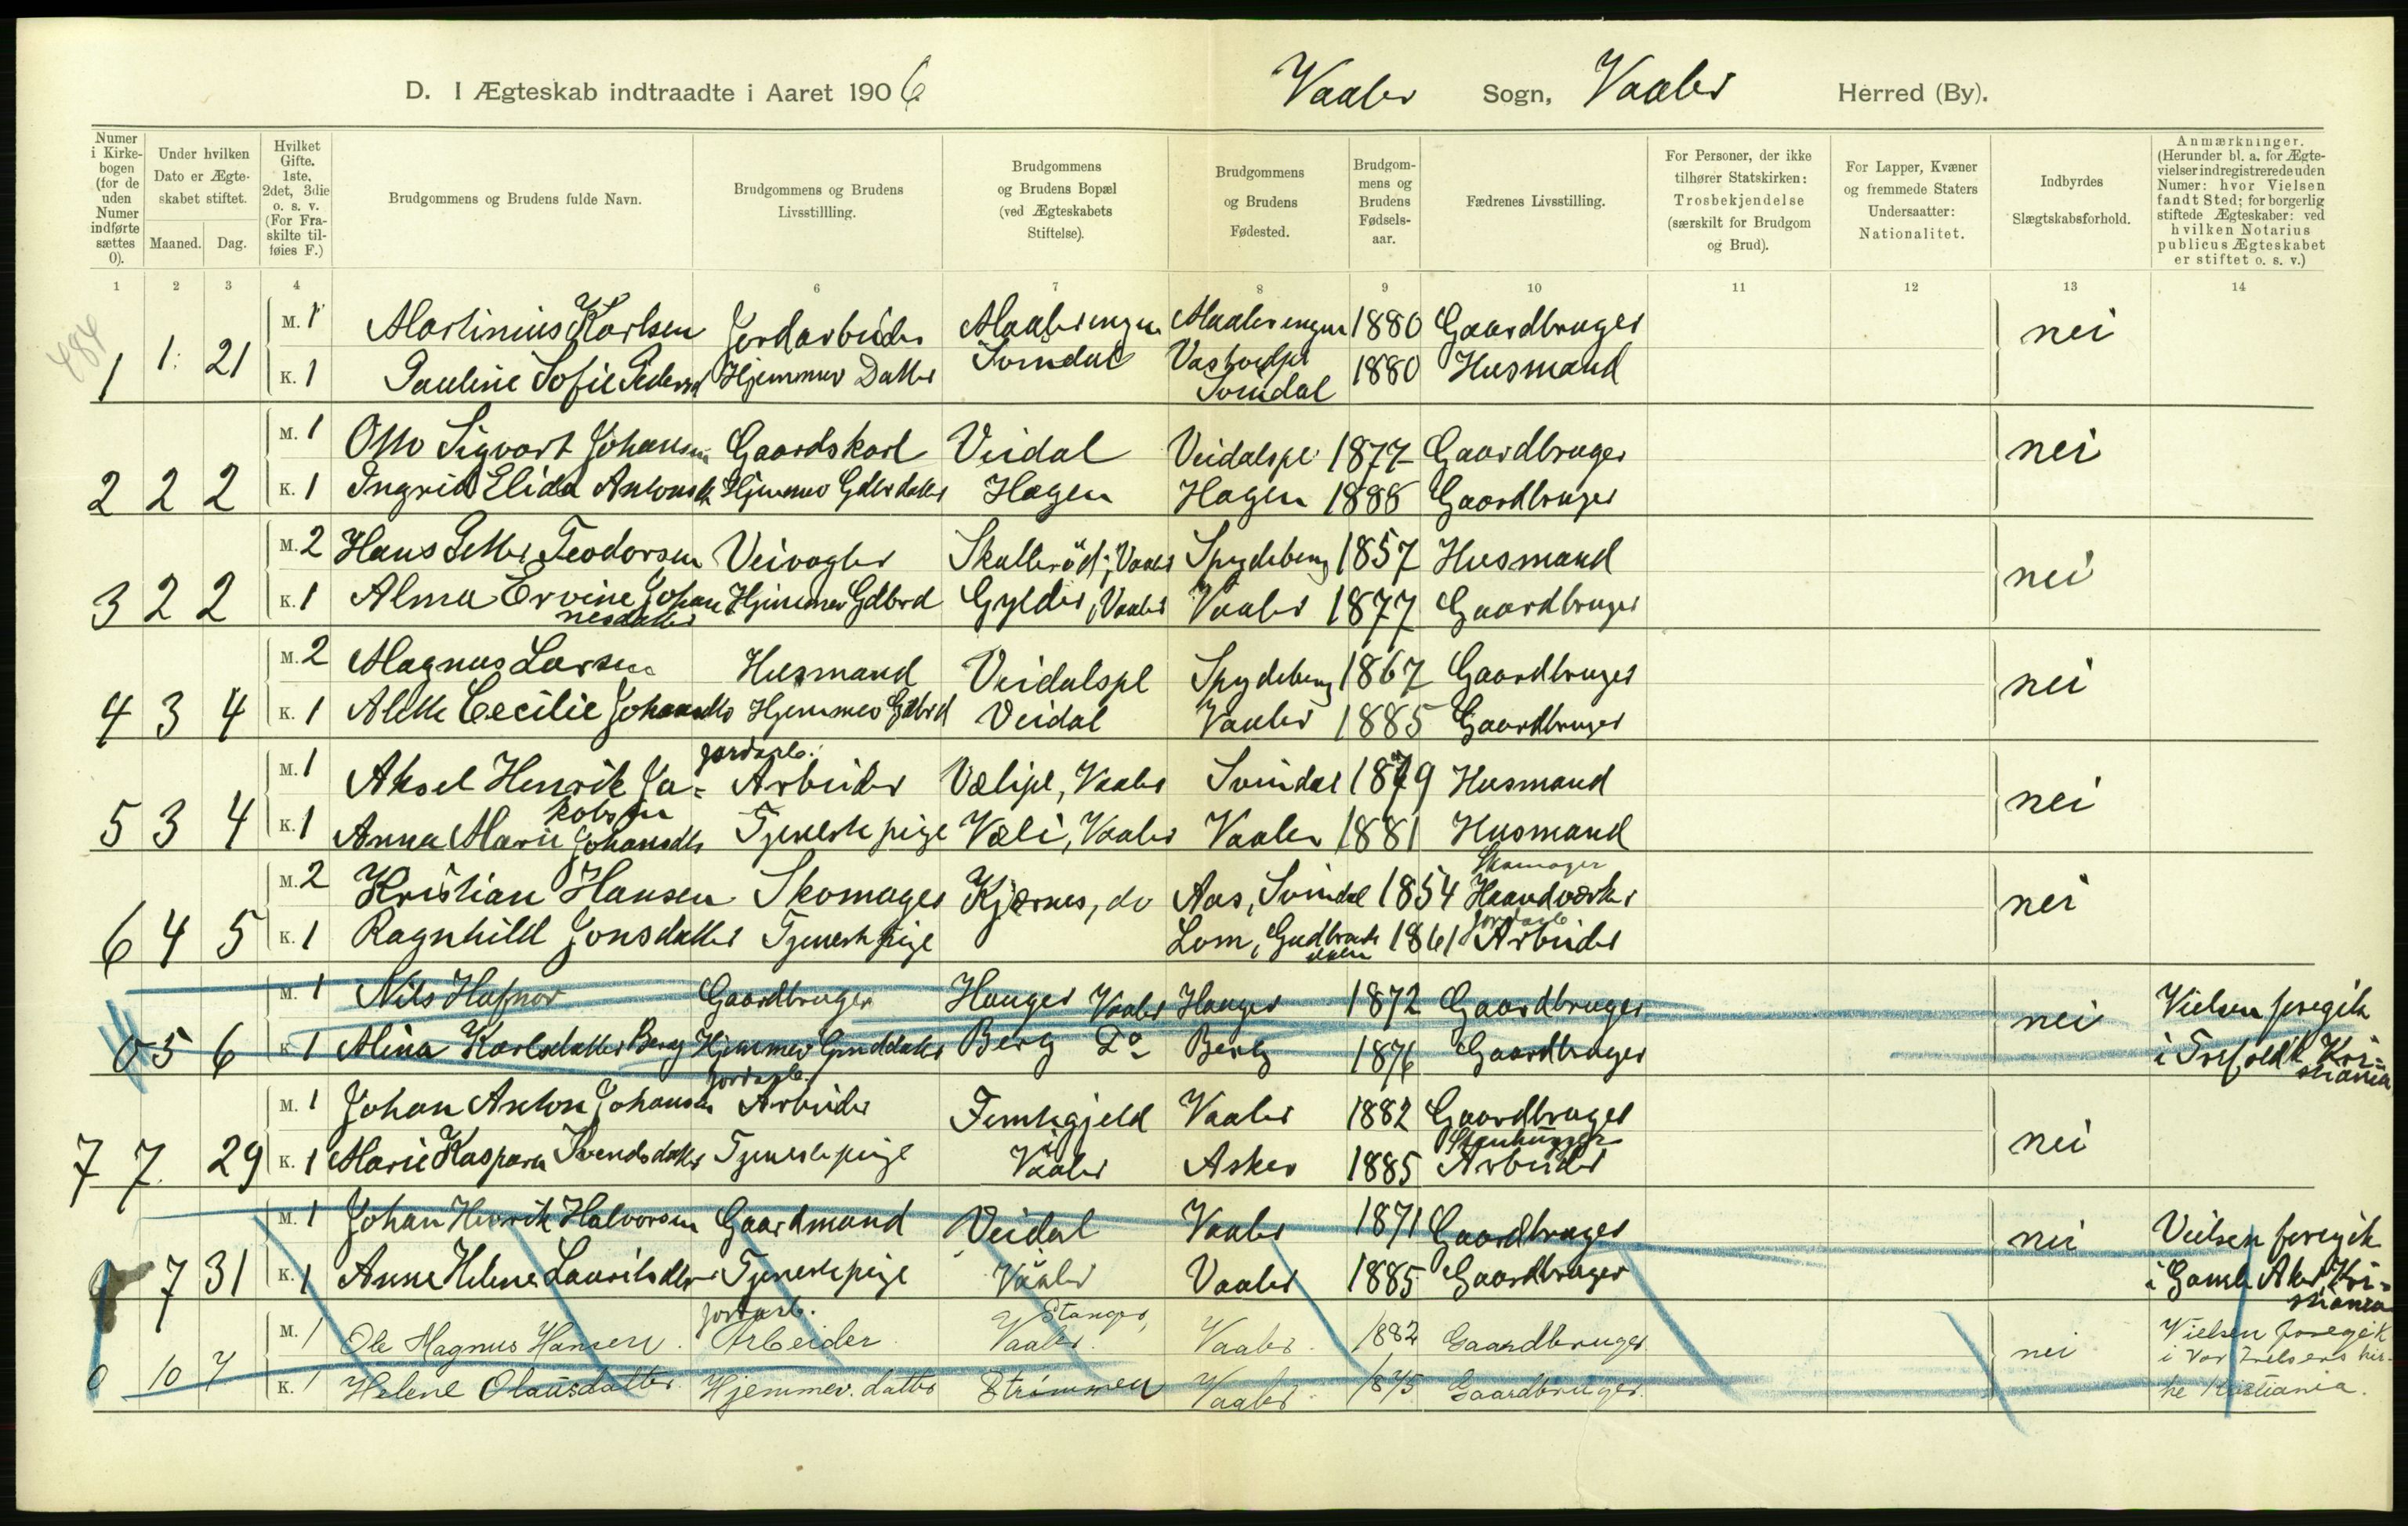 D. I Ægteskab indtraadte i Aaret 1906 Vaaler Sogn, Vaaler Herred (By).
Numer i Kirkebogen (for de uden Numer indførte sættes 0).
Under hvilken Dato er Ægteskabet stiftet.
Maaned. Dag.
Hvilket Gifte. 1ste, 2det, 3die o. s. v. (For Fraskilte tilføies F.)
Brudgommens og Brudens fulde Navn.
Brudgommens og Brudens Livsstillling.
Brudgommens og Brudens Bopæl (ved Ægteskabets Stiftelse).
Brudgommens og Brudens Fødested.
Brudgommens og Brudens Fødselsaar.
Fædrenes Livsstilling.
For Personer, der ikke tilhører Statskirken: Trosbekjendelse (særskilt for Brudgom og Brud).
For Lapper, Kvæner og fremmede Staters Undersaatter: Nationalitet.
Indbyrdes Slægtskabsforhold.
Anmærkninger. (Herunder bl. a. for Ægtevielser indregistrerede uden Numer: hvor Vielsen fandt Sted; for borgerlig stiftede Ægteskaber: ved hvilken Notarius publicus Ægteskabet er stiftet o. s. v.)
1 2 3 4 6 7 8 9 10 11 12 13 14
484
M. 1 Martinius Karlsen Jordarbeider 1880 Gaardbruger nei
1 1. 21 K. 1 Pauline Sofie Hjemmev Datter Svindal Svindal 1880 Husmand
M. 1 Otto Sigvart Johansen Gaardskarl Veidal Veidalspl. 1877 Gaardbruger nei
2 2 2 K. 1 Ingrid Elida Hjemmev Gdbrdatter Hagen Hagen 1888 Gaardbruger
M. 2 Hans Petter Teodorsen Veivogter Skallerød, Vaaler Spydeberg 1857 Husmand nei
3 2 2 K. 1 Alma Ervine Johannesdatter Hjemmev Gdbrd Gylder, Vaaler Vaaler 1877 Gaardbruger
M. 2 Magnus Larsen Husmand Veidalspl Spydeberg 1867 Gaardbruger nei
4 3 4 K. 1 Alette Cecilie Hjemmev Gdbrd Veidal Vaaler 1885 Gaardbruger
M. 1 Aksel Henrik Jakobsen jordarb. Arbeider Vælipl, Vaaler Svindal 1879 Husmand nei
5 3 4 K. 1 Anna Marie Johansdtr Tjenestepige Væli, Vaaler Vaaler 1881 Husmand
M. 2 Kristian Hansen Skomager Kjærnes, do Aas, Svindal 1854 Skomager Haandværker nei
6 4 5 K. 1 Ragnhild Jonsdatter Tjenestepige Lom, Gudbrandsdalen 1861 jordarb Arbeider
M. 1 Nils Gaardbruger Hauger Vaaler Hauger 1872 Gaardbruger nei Vielsen foregik
0 5 6 K. 1 Alina Karlsdatter Berg Hjemmev Berg Do Berg 1876 Gaardbruger i Trefoldh Kristiania
M. 1 Johan Anton Johansen jordarb. Arbeider Femtegjeld Vaaler 1882 Gaardbruger nei
7 7. 29 K. 1 Marie Kaspara Svendsdatter Tjenestepige i Vaaler Asker 1885 Stenhugger Arbeider
M. 1 Johan Henrik Halvorsen Gaardmand Veidal Vaaler 1871 Gaardbruger nei Vielsen foregik
0 7 31 K. 1 Anne Helene Lauritsdtr Tjenestepige Vaaler Vaaler 1885 Gaardbruger i Gamle Aker Kristiania
M. 1 Ole Magnus Hansen. jordarb. Arbeider Stanger, Vaaler. Vaaler. 1882 Gaardbruger nei Vielsen foregik
0 10 7 K. 1 Helene Olausdatter. Hjemmev. datter Strömmen Vaaler. 1875 Gaardbruger. i Vor Frelsers kirke Kristiania.